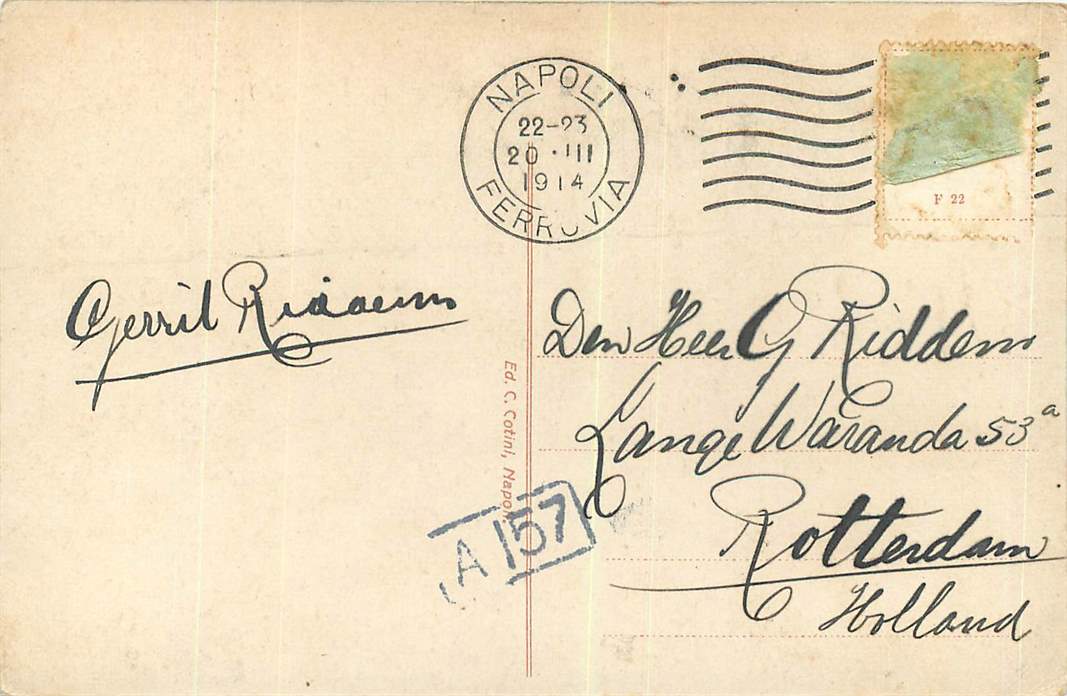 NAPOLI
22-23
20 · III
1914
FERROVIA
F 22
Gerrit Riddem
Den Heer G Riddem
Lange Waranda 53a
Rotterdam
Holland
Ed. C. Cotini, Napoli
A 157